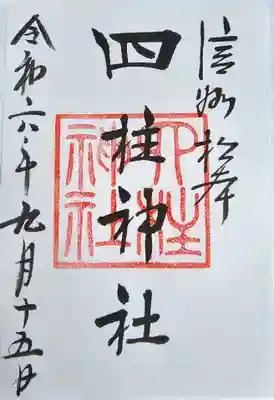 信州松本
四柱神社
四柱神社
令和六年九月十五日